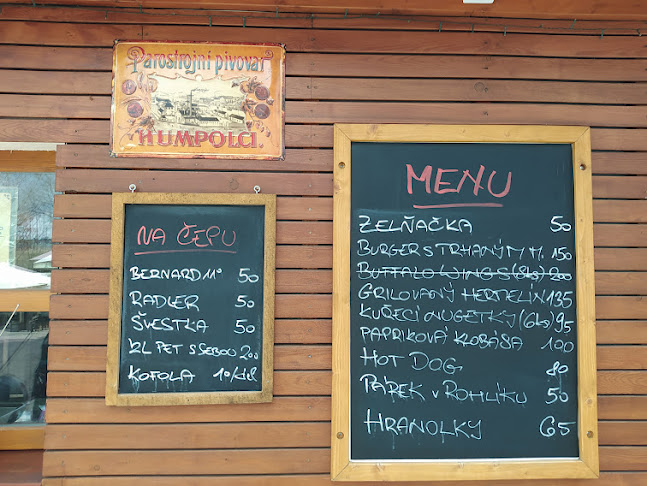 Parostrojní pivovar
HUMPOLCI.
NA ČEPU
BERNARD 11° 50
RADLER 50
ŠVESTKA 50
PET S SEBOU 200
KOFOLA 10/dcl
MENU
ZELŇAČKA 50
BURGER S TRHANÝM M. 150
BUFFALO WINGS (8ks) 200
GRILOVANÝ HERMELÍN 135
KUŘECÍ NUGETKY (6ks) 95
PAPRIKOVÁ KLOBÁSA 100
HOT DOG 80
PÁREK V ROHLÍKU 50
HRANOLKY 65